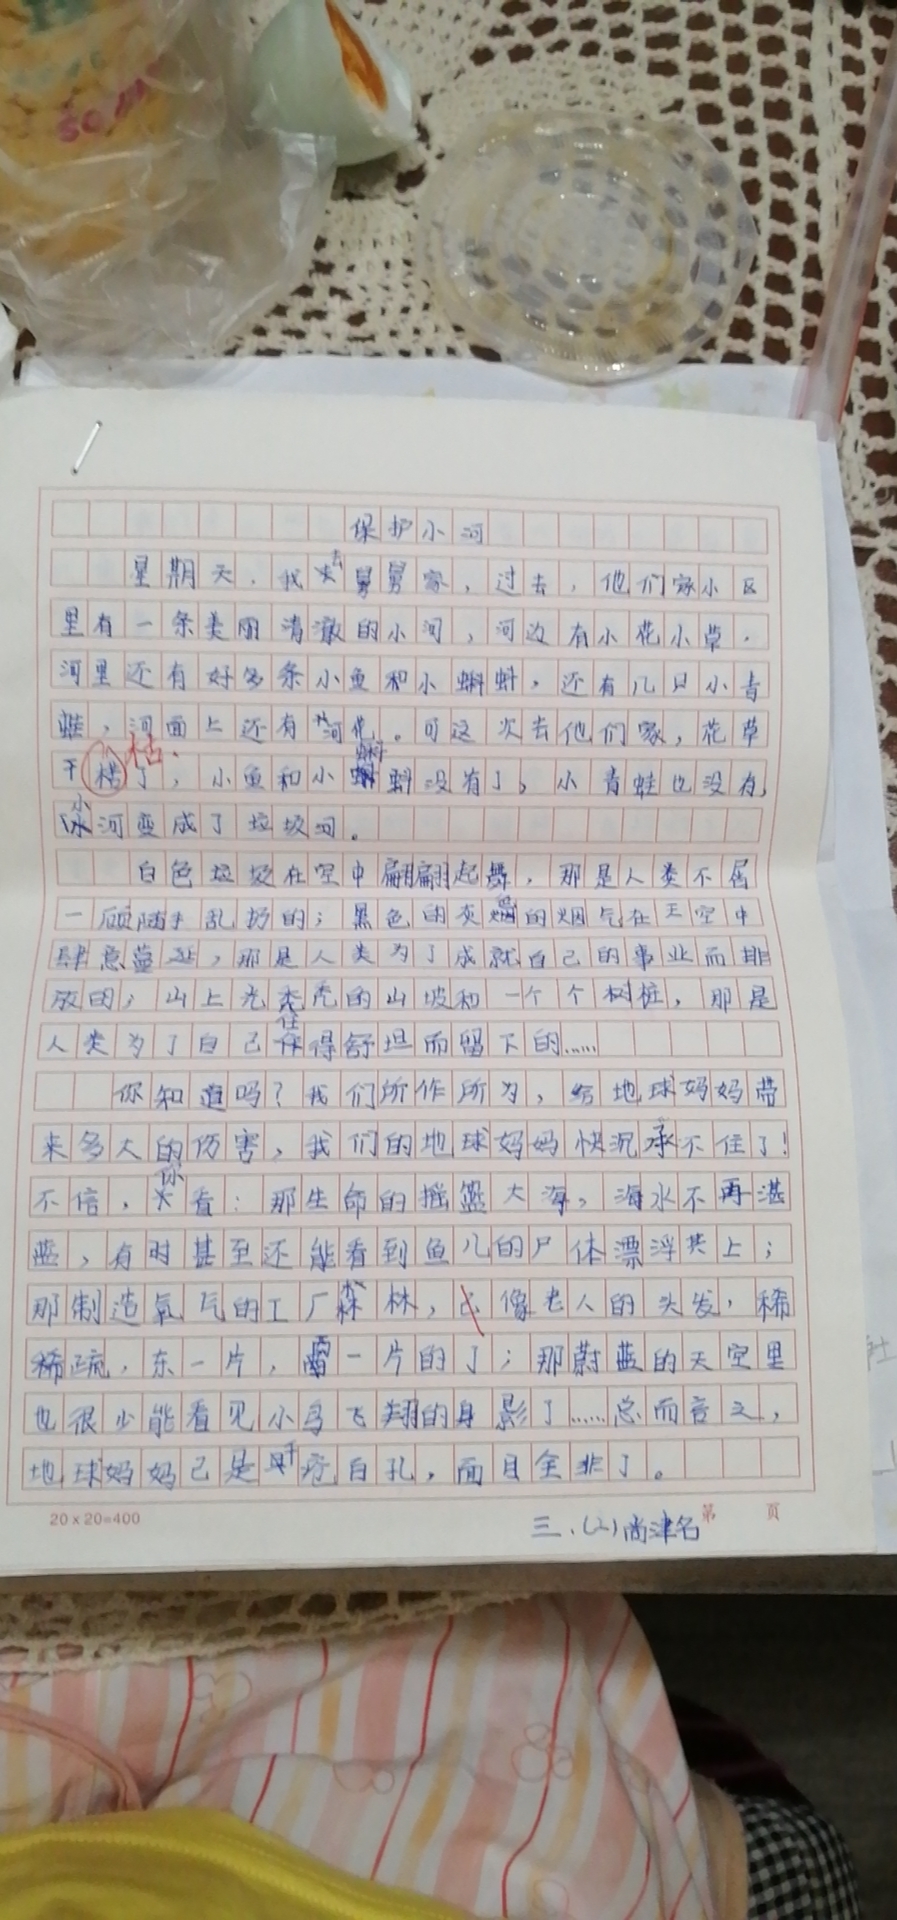 保护小河
星期天，我去舅舅家，过去，他们家小区
里有一条美丽清澈的小河，河边有小花小草，
河里还有好多条小鱼和小蝌蚪，还有几只小青
蛙，河面上还有荷花。可这次去他们家，花草
干枯了，小鱼和小蝌蚪没有了，小青蛙也没有，
小河变成了垃圾河。
白色垃圾在空中翩翩起舞，那是人类不屑
一顾随手乱扔的；黑色的灰烟的烟气在天空中
肆意蔓延，那是人类为了成就自己的事业而排
放的；山上光秃秃的山坡和一个个树桩，那是
人类为了自己住得舒坦而留下的……
你知道吗？我们所作所为，给地球妈妈带
来多大的伤害，我们的地球妈妈快沉承不住了！
不信，你看：那生命的摇篮大海，海水不再湛
蓝，有时甚至还能看到鱼儿的尸体漂浮其上；
那制造氧气的工厂森林，像老人的头发，稀
稀疏，东一片，西一片的了；那蔚蓝的天空里
也很少能看见小鸟飞翔的身影了……总而言之，
地球妈妈已是千疮百孔，面目全非了。
20×20=400
第 页
三.(2)尚津名